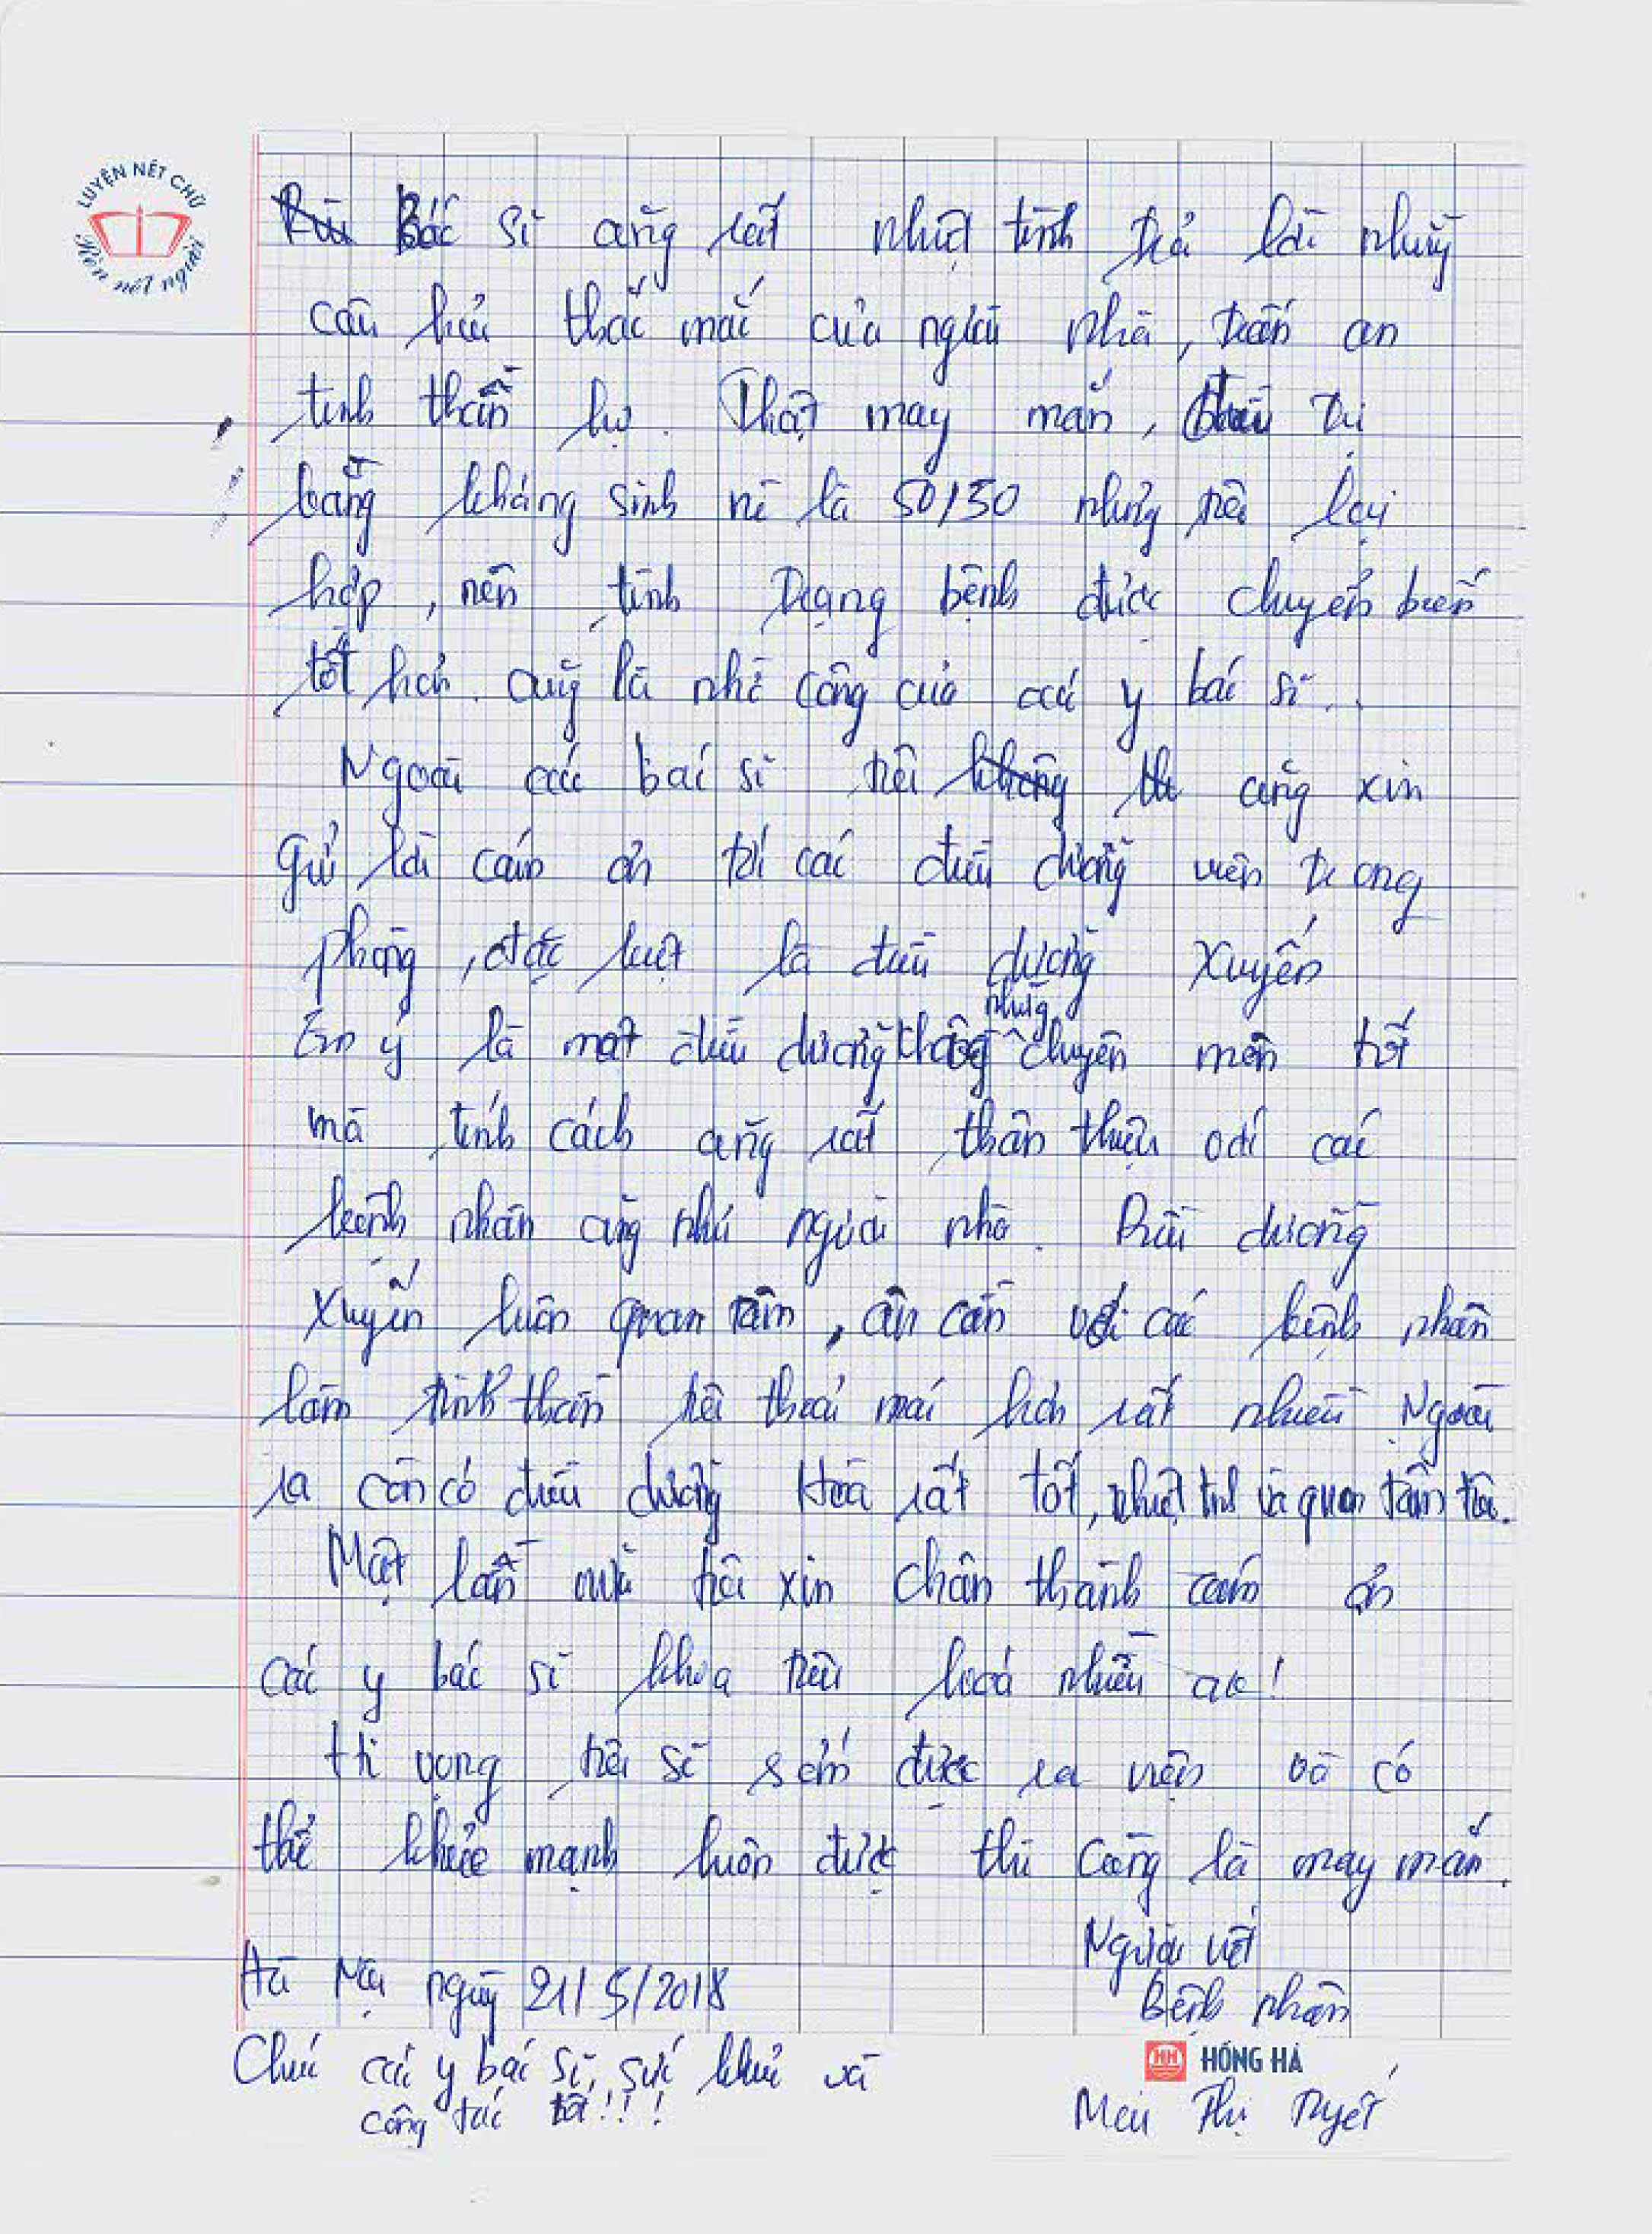 LUYỆN NÉT CHỮ
Rèn nét người
Bác sĩ cũng rất nhiệt tình trả lời những
câu hỏi thắc mắc của người nhà, trấn an
tinh thần họ. Thật may mắn, điều trị
bằng kháng sinh nó là 50/50 nhưng tôi lại
hợp, nên tình trạng bệnh được chuyển biến
tốt hơn. cũng là nhờ công của các y bác sĩ.
Ngoài các bác sĩ tôi cũng xin
gửi lời cám ơn tới các điều dưỡng viên trong
phòng, đặc biệt là điều dưỡng Xuyến
Em ý là một điều dưỡng không những chuyên môn tốt
mà tính cách cũng rất thân thiện với các
bệnh nhân cũng như người nhà. Điều dưỡng
Xuyến luôn quan tâm, ân cần với các bệnh nhân
làm tinh thần tôi thoải mái hơn rất nhiều Ngoài
ra còn có điều dưỡng Hoà rất tốt, nhiệt tình và quan tâm tôi.
Một lần nữa tôi xin chân thành cám ơn
các y bác sĩ khoa tiêu hoá nhiều ạ!
Hi vọng tôi sẽ sớm được ra viện và có
thể khỏe mạnh luôn được thì càng là may mắn.
Người viết
Hà Nội ngày 21/5/2018
Bệnh nhân
Chúc các y bác sĩ sức khoẻ và
HH HỒNG HÀ
công tác tốt!!!
Mai Thị Tuyết